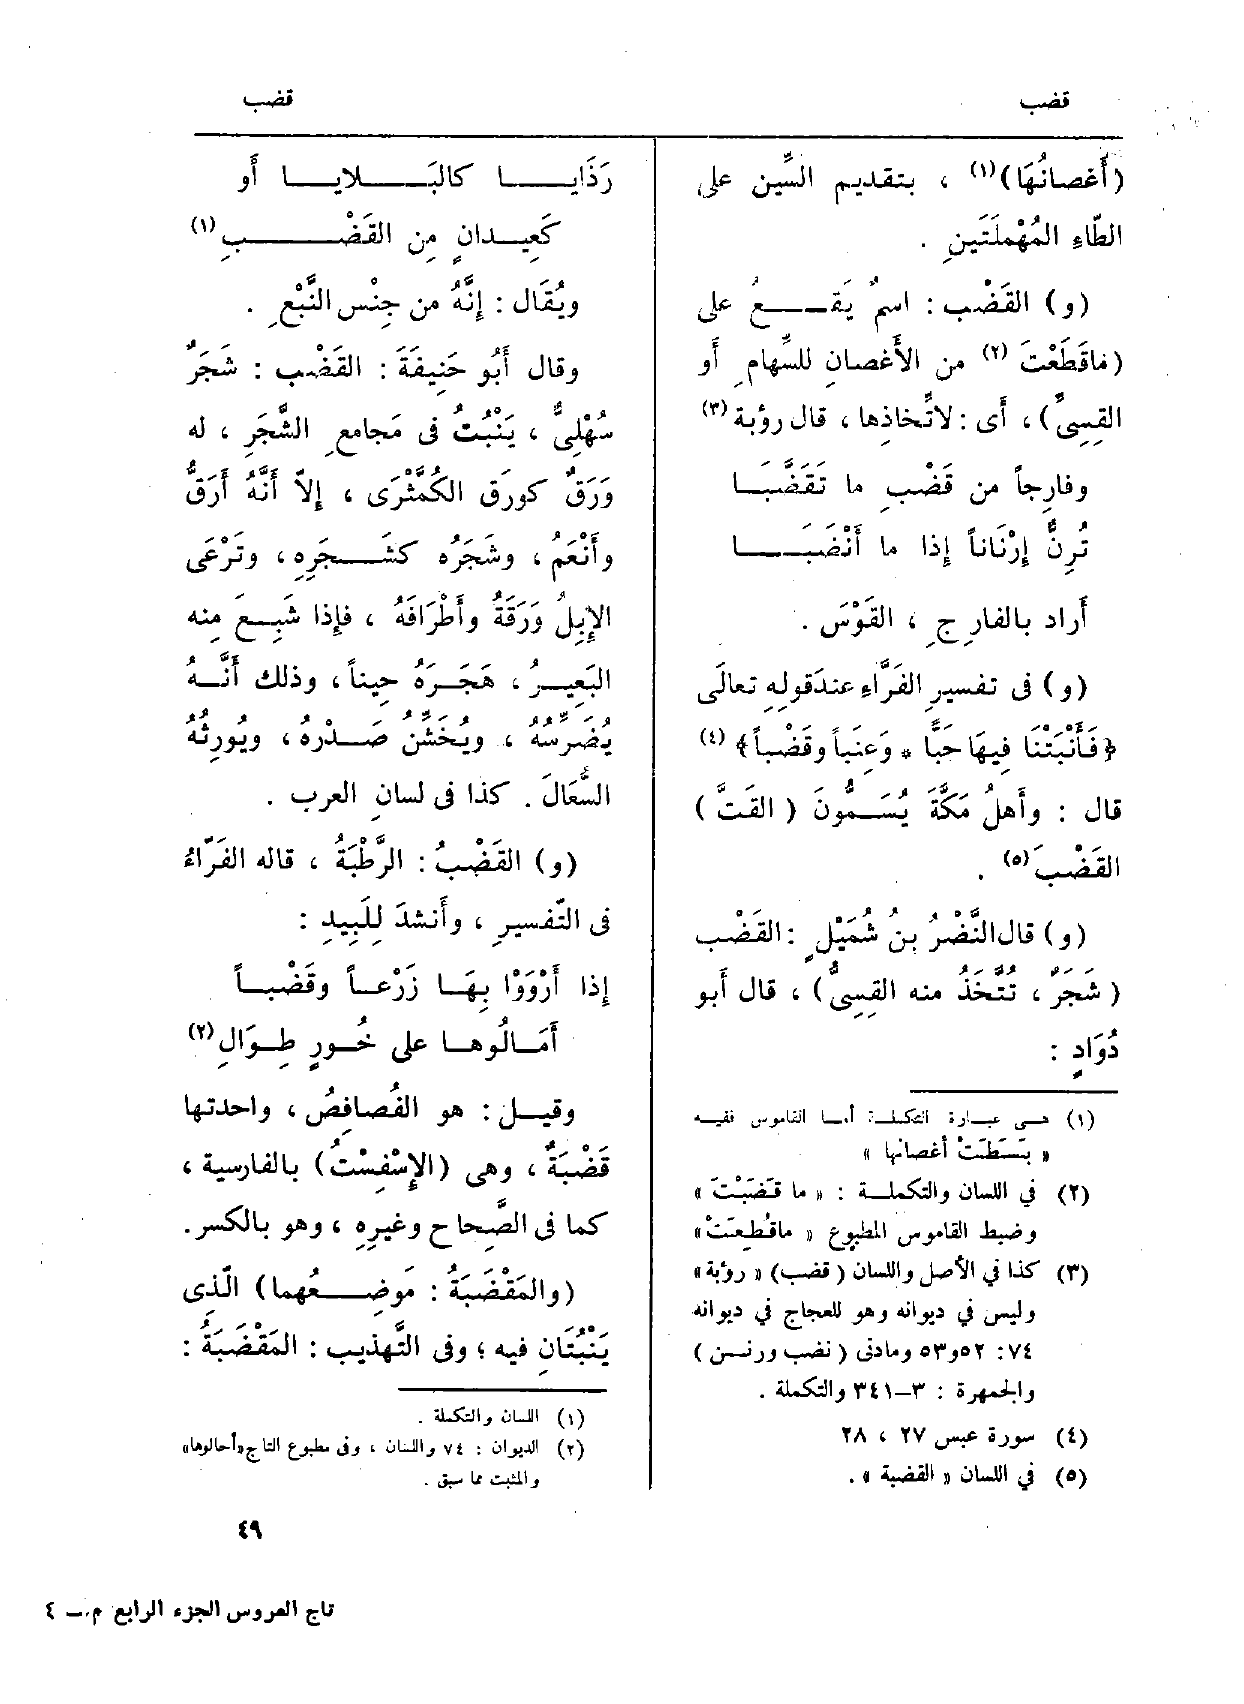 قضب
قضب
(أَغصانُهَا)(١) ، بتقديم السِّين على
الطّاءِ المُهْمَلَتَينِ .
(و) القَضْب : اسمٌ يَقعُ على
(ماقَطَعْتَ (٢) من الأَغصانِ للسِّهامِ أَو
القِسِيِّ) ، أَى : لاتِّخاذِها ، قال رؤبة (٣)
وفارِجاً من قَضْبِ ما تَقَضَّبَا
تُرِنُّ إِرْنَاناً إِذا ما أَنْضَبَا
أَراد بالفارِجِ ، القَوْسَ .
(و) فى تفسيرِ الفَرَّاءِ عندَقولِهِ تعالَى
﴿فَأَنْبَتْنَا فِيهَا حَبًّا * وَعِنَباً وقَضْباً﴾ (٤)
قال : وأَهلُ مَكَّةَ يُسَمُّونَ (القَتَّ)
القَضْبَ (٥) .
(و) قال النَّضْرُ بنُ شُمَيْلٍ : القَضْب
(شَجَرٌ ، تُتَّخَذُ منه القِسِىُّ) ، قال أَبو
دُوَادٍ :
(١) هى عبارة التكملة أما القاموس ففيه
« بَسَطَتْ أغصانها »
(٢) في اللسان والتكملة : « ما قَضَبْتَ »
وضبط القاموس المطبوع « ماقُطِعَتْ »
(٣) كذا في الأصل واللسان (قضب) « رؤبة »
وليس في ديوانه وهو للعجاج في ديوانه
٧٤ : ٥٢ و٥٣ ومادتى (نضب ورنن)
والجمهرة : ٣-٣٤١ والتكملة .
(٤) سورة عبس ٢٧ ، ٢٨
(٥) في اللسان « القضبة » .
رَذَايا كالبَلايا أَو
كَعِيدانٍ مِن القَضْبِ (١)
ويُقَال : إِنَّهُ من جِنْسِ النَّبْعِ .
وقال أَبُو حَنِيفَةَ : القَضْب : شَجَرٌ
سُهْلِىٌّ ، يَنْبُتُ فى مَجامعِ الشَّجَرِ ، له
وَرَقٌ كورَقِ الكُمَّثْرَى ، إِلاّ أَنَّهُ أَرَقُّ
وأَنْعَمُ ، وشَجَرُه كشَجَرِهِ ، وتَرْعَى
الإِبِلُ وَرَقَهُ وأَطْرَافَهُ ، فإِذا شَبِعَ مِنه
البَعِيرُ ، هَجَرَهُ حِيناً ، وذلك أَنَّهُ
يُضَرِّسُهُ ، ويُخَشِّنُ صَدْرَه ، ويُورِثُهُ
السُّعَالَ . كذا فى لسانِ العرب .
(و) القَضْبُ : الرَّطْبَةُ ، قاله الفَرّاءُ
فى التّفسيرِ ، وأَنشدَ لِلَبِيدِ :
إِذا أَرْوَوْا بِهَا زَرْعاً وقَضْباً
أَمَالُوها على خُورٍ طِوَالِ (٢)
وقيل : هو الفُصافِصُ ، واحدتها
قَضْبَةٌ ، وهى (الإِسْفِسْتُ) بالفارسية ،
كما فى الصّحاحِ وغيرِهِ ، وهو بالكسر.
(والمَقْضَبَةُ : مَوضِعُهما) الَّذِى
يَنْبُتَانِ فيه ؛ وفى التَّهذيب : المَقْضَبَةُ :
(١) اللسان والتكملة .
(٢) الديوان : ٧٤ واللسان ، وفى مطبوع التاج «أحالوها»
والمثبت مما سبق .
٤٩
تاج العروس الجزء الرابع م. - ٤